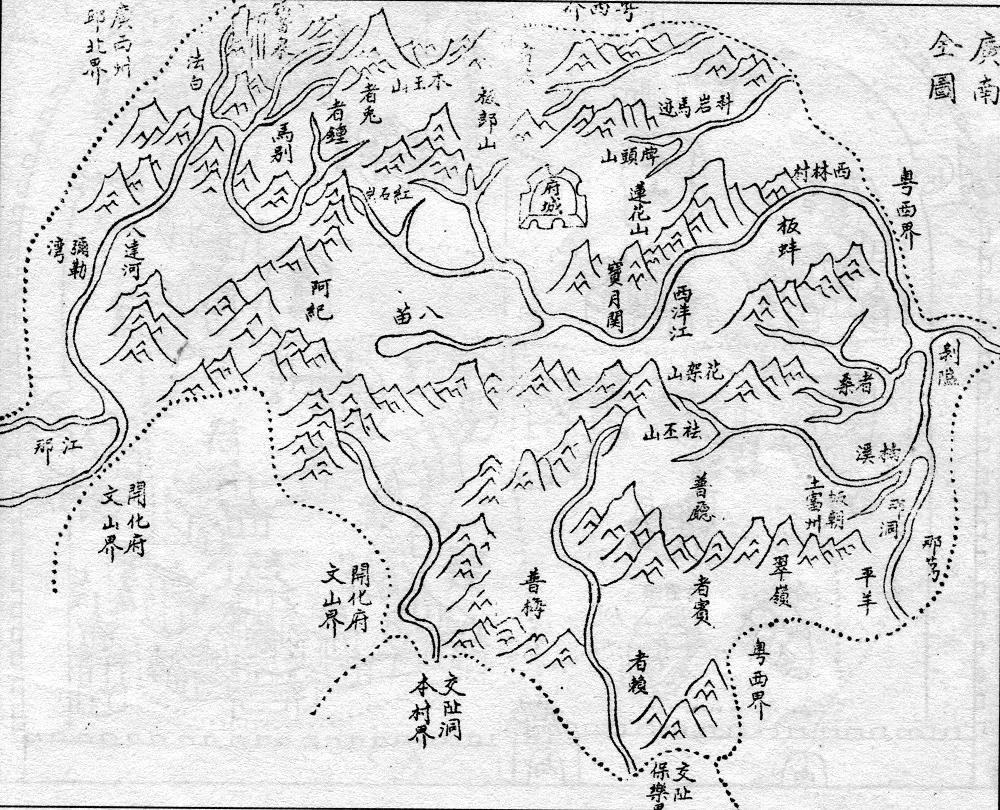 廣南
全圖
粵西界
粵西界
西林村
板蚌
剝隘
科岩馬迹
牌頭山
蓮花山
府城
寶月関
西洋江
板郎山
本王山
者兎
者鐘
馬别
紅石岩
法白
廣西州
邱北界
彌勒
湾
八達河
阿紀
八苗
花架山
者桑
祛丕山
楠溪
那洞
板朝
土富州
普廳
翠嶺
平羊
者賓
普梅
者賴
粵西界
江那
開化府
文山界
開化府
文山界
交趾洞
本村界
交趾
保樂界